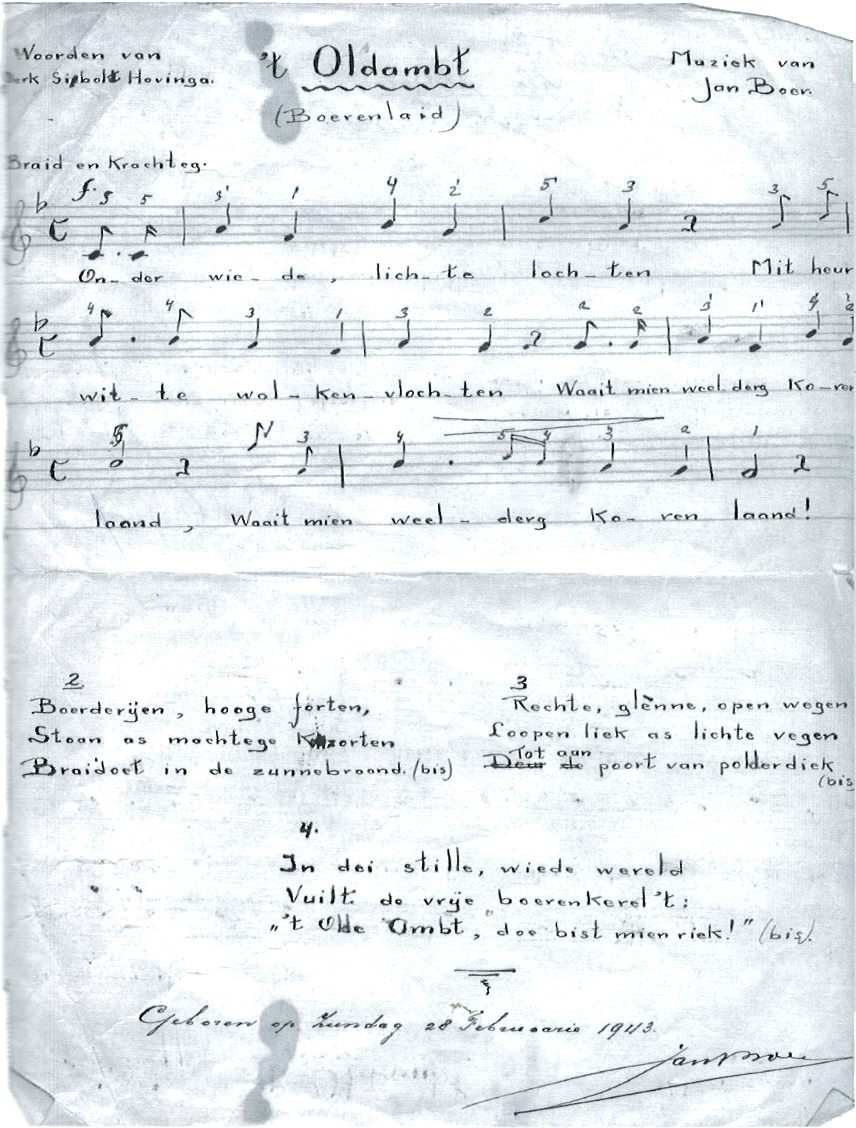 Woorden van
Derk Sibolt Hovinga.
't Oldambt
(Boerenlaid)
Muziek van
Jan Boer.
Braid en Krachteg.
f. 5 5 3' 1 4 2' 5' 3 3 5
On-der wie-de, lich-te loch-ten Mit heur
4 4 3 1 3 2 2 2 3' 1' 4 2
wit-te wol-ken-vloch-ten Waait mien weel-derg Ko-ren
5 3 4 5 4 3 2 1
laand, Waait mien weel-derg Ko-ren laand!
2
Boerderijen, hooge forten,
Stoan as machtege
Braidoet in de zunnebraand. (bis)
3
Rechte, glènne, open wegen
Loopen liek as lichte vegen
Tot aan
Deur de poort van polderdiek
(bis
4.
In dei stille, wiede wereld
Vuilt de vrije boerenkerel 't:
„'t Olde Ambt, doe bist mien riek!" (bis).
Geboren op Zundag 28 Februoarie 1943.
Jan Boer